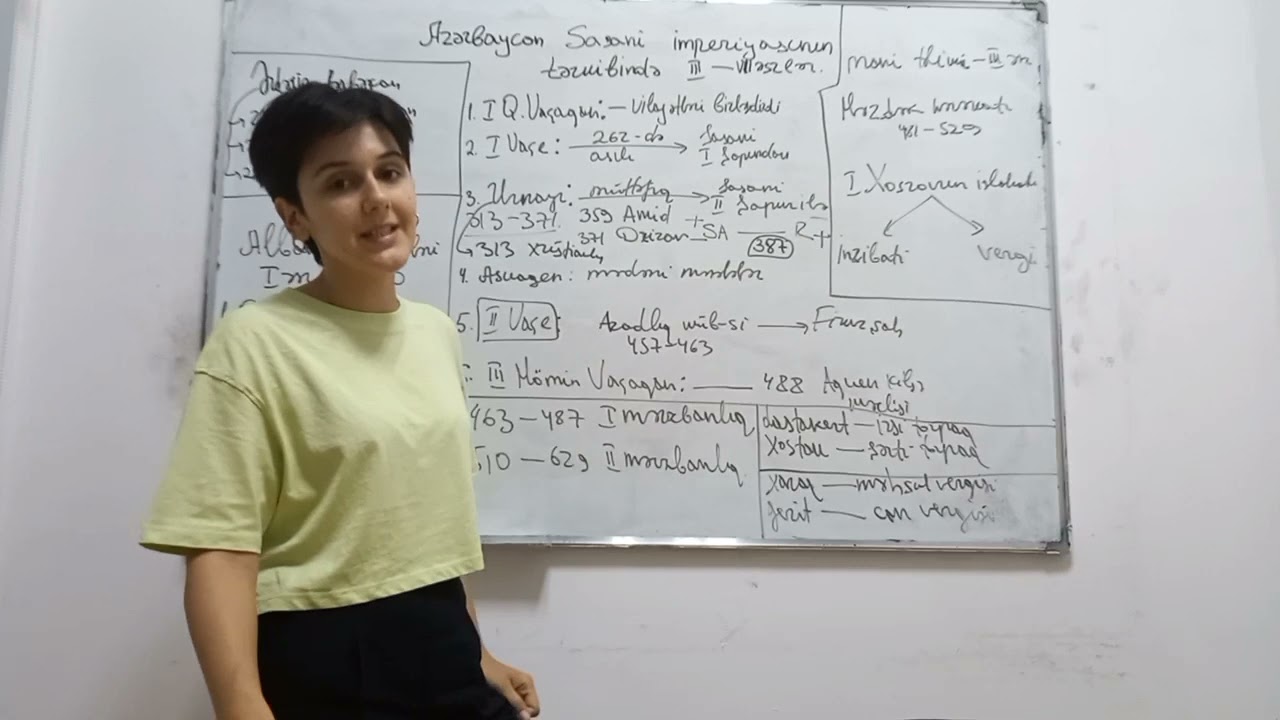 Azərbaycan Sasani imperiyasının
tərkibində III – VII əsrlər.
1. I Q. Vaçaqan: – vilayətləri birləşdirdi
2. I Vaçe: 262-də asılı → Sasani I Şapurdan
3. Urnayr: müttəfiq → Sasani II Şapur ilə
313-371 359 Amid +
↳ 313 xristianlıq 371 Dzirav – SA — R +
387
4. Asuagen: mədəni mərkəz
5. II Vaçe: Azadlıq müb-si → Firuzşah
457-463
III Mömin Vaçaqan: — 488 Aquen kilsə
məclisi
463 – 487 I mərzbanlıq
510 – 629 II mərzbanlıq
Mani təlimi – III əsr.
Məzdək hərəkatı
481 – 529
I Xosrovun islahatı
İnzibati
vergi
dastakert – irsi torpaq
Xostak – şərti torpaq
Xaraq – məhsul vergisi
Gezit – can vergisi
Alb
I